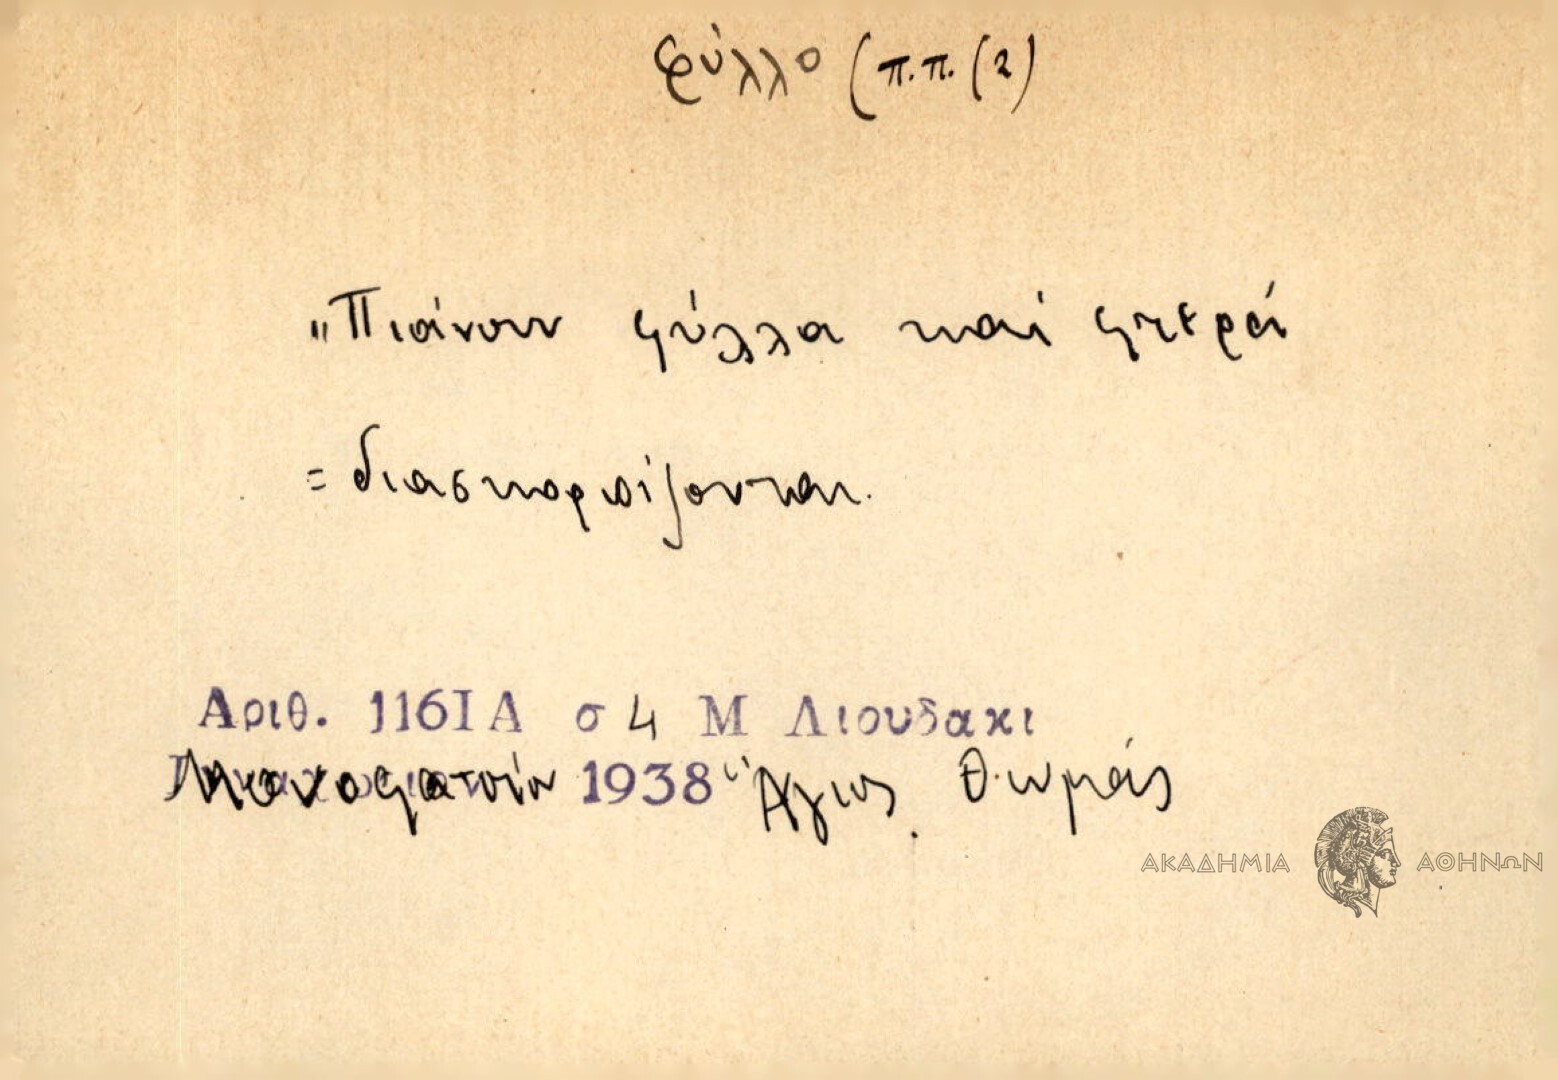 φύλλο (π.π. (2)
"Πιάνουν φύλλα καί φτερά
= διασκορπίζονται.
Αριθ. 1161Α σ 4 Μ Λιουδακι
Μονοφατσίον 1938 Ἅγιος Θωμάς
ΑΚΑΔΗΜΙΑ ΑΘΗΝΩΝ